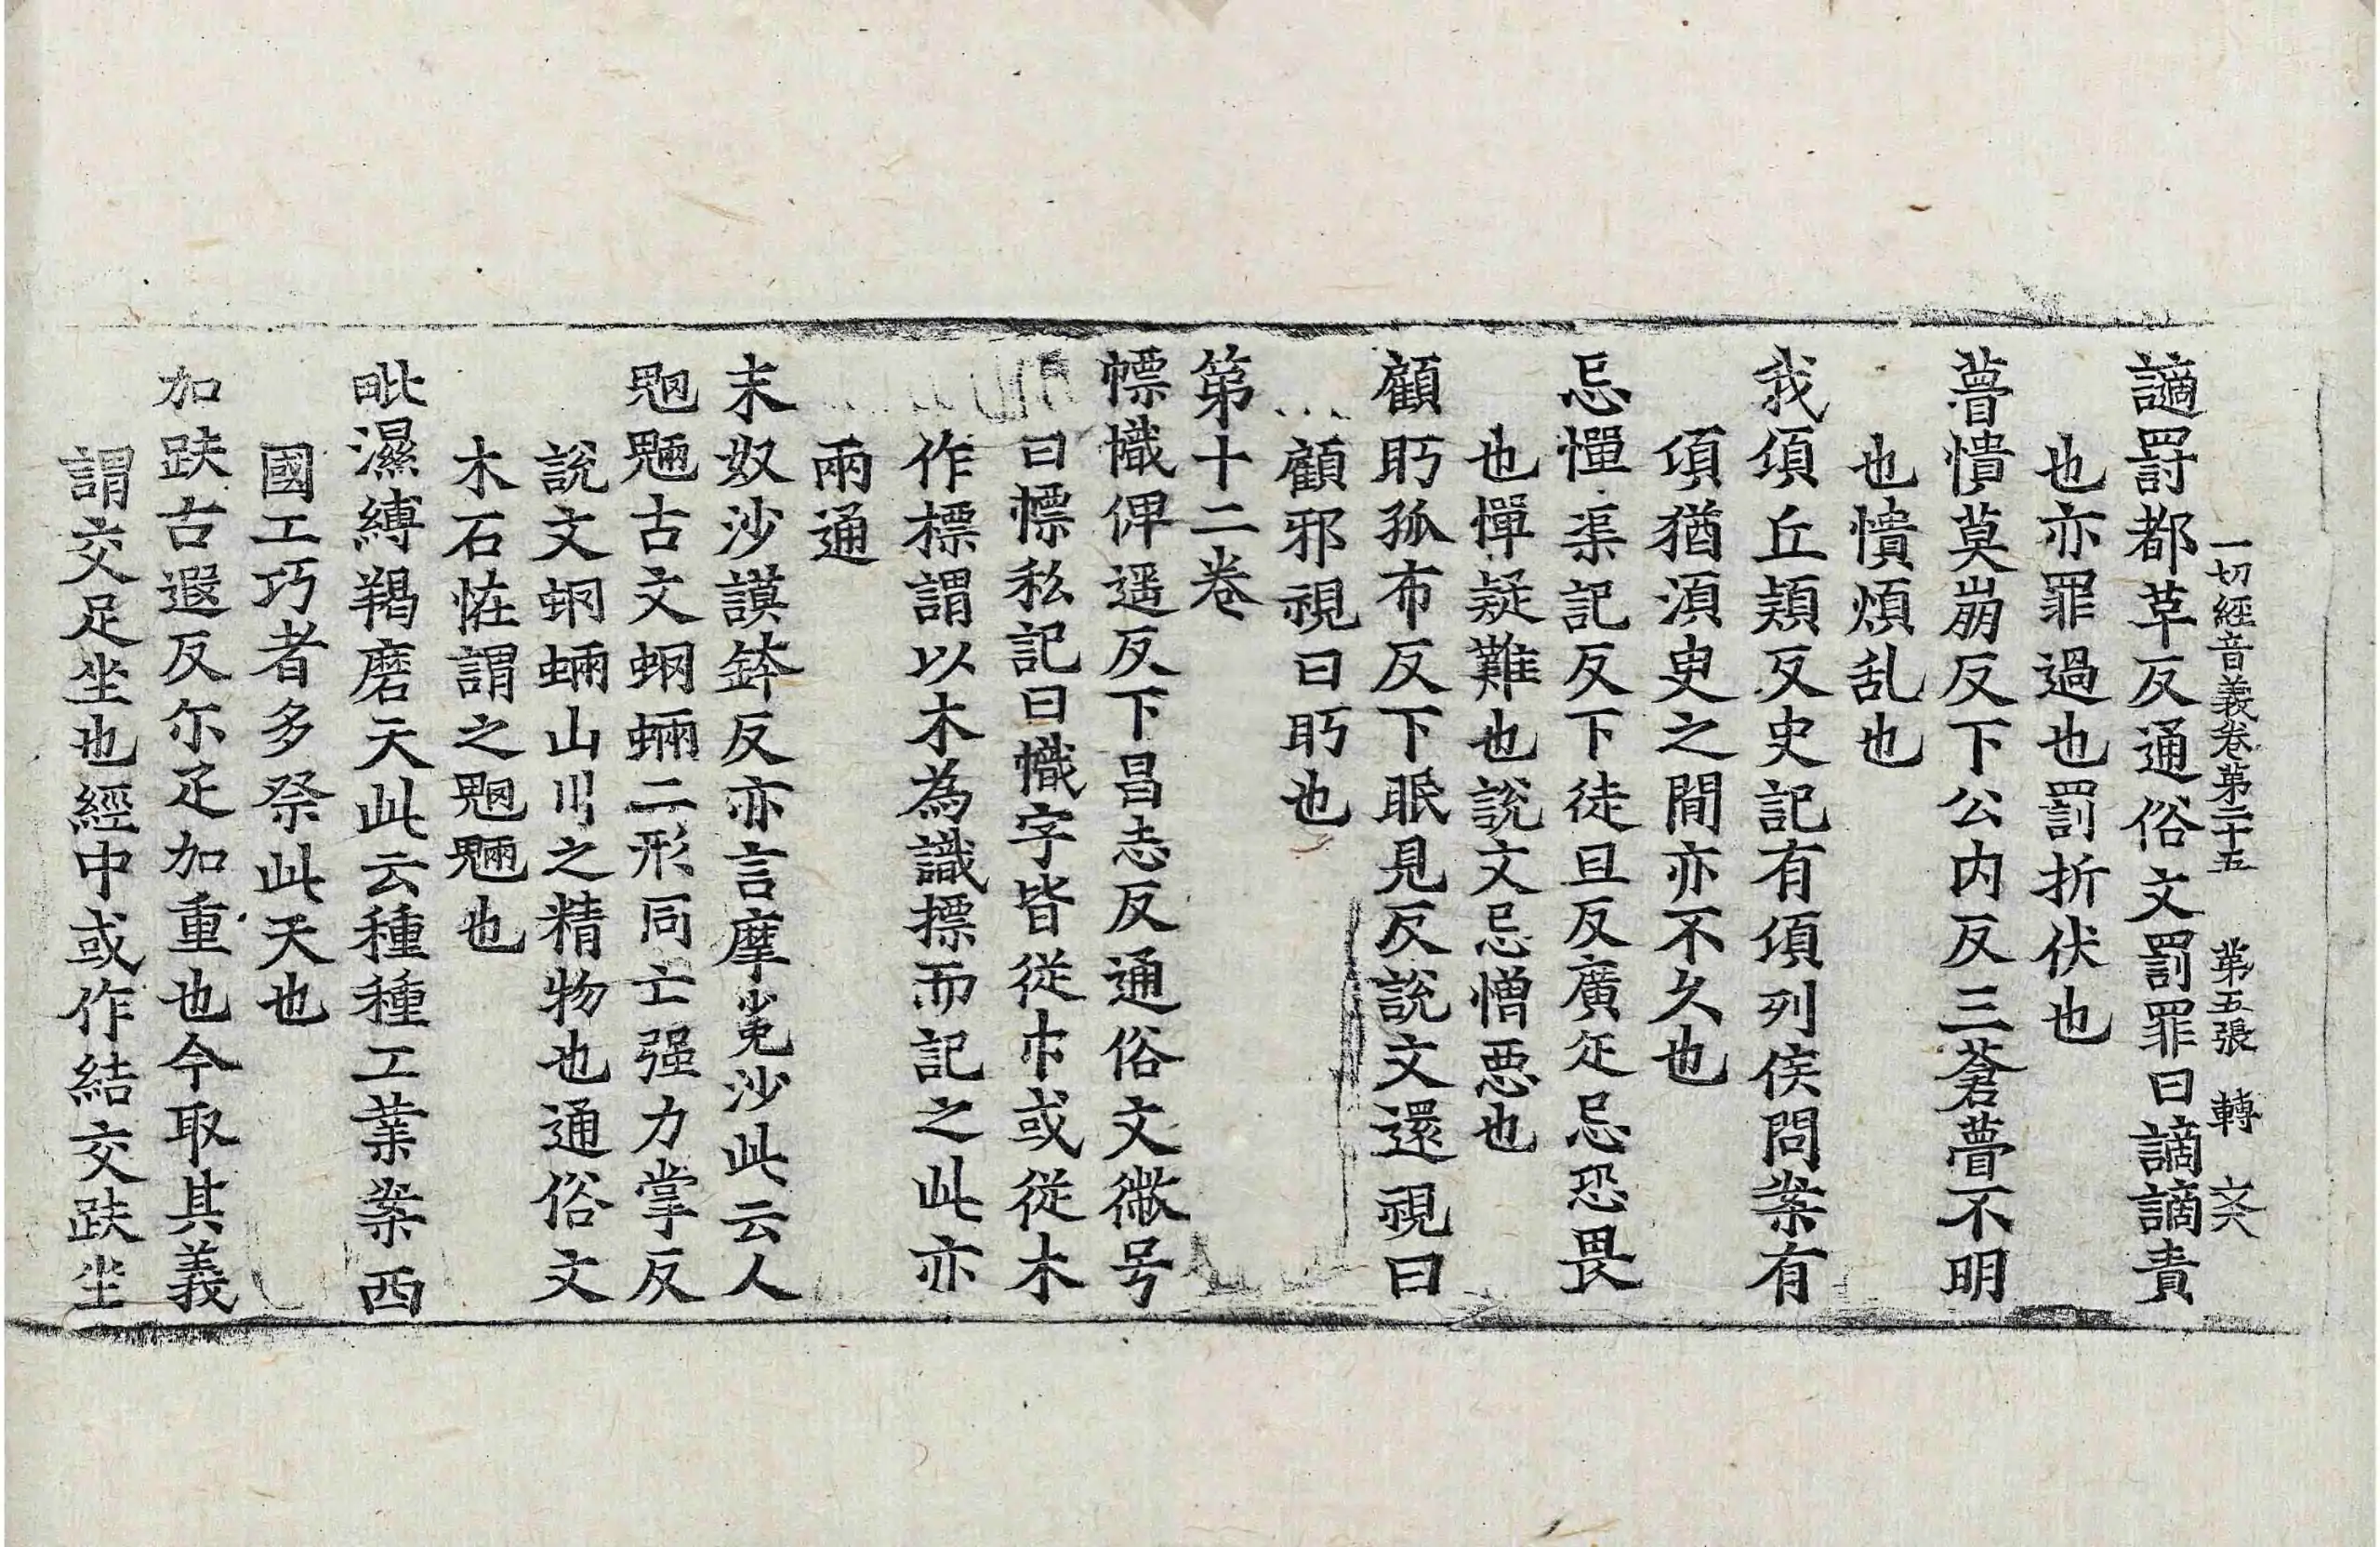 一切經音義卷第二十五 第五張 轉
讁罸都革反通俗文罰罪曰謫謫責
也亦罪過也罰折伏也
瞢憒莫崩反下公内反三蒼瞢不明
也憒煩乱也
我須丘頴反史記有頃列侯問案有
頃猶湏臾之間亦不久也
忌憚渠記反下徒旦反廣疋忌恐畏
也憚疑難也說文忌憎惡也
顧眄孤布反下眠見反說文還視曰
顧邪視曰眄也
第十二卷
幖幟俾遥反下昌志反通俗文微号
曰幖私記曰幟字皆從巾或從木
作標謂以木為識摽而記之此亦
兩通
末奴沙謨鉢反亦言摩㝹沙此云人
魍魎古文蛧蜽二形同亡强力掌反
說文蛧蜽山川之精物也通俗文
木石恠謂之魍魎也
毗濕縛羯磨天此云種種工業案西
國工巧者多祭此天也
加趺古遐反尓疋加重也今取其義
謂交足坐也經中或作結交趺坐